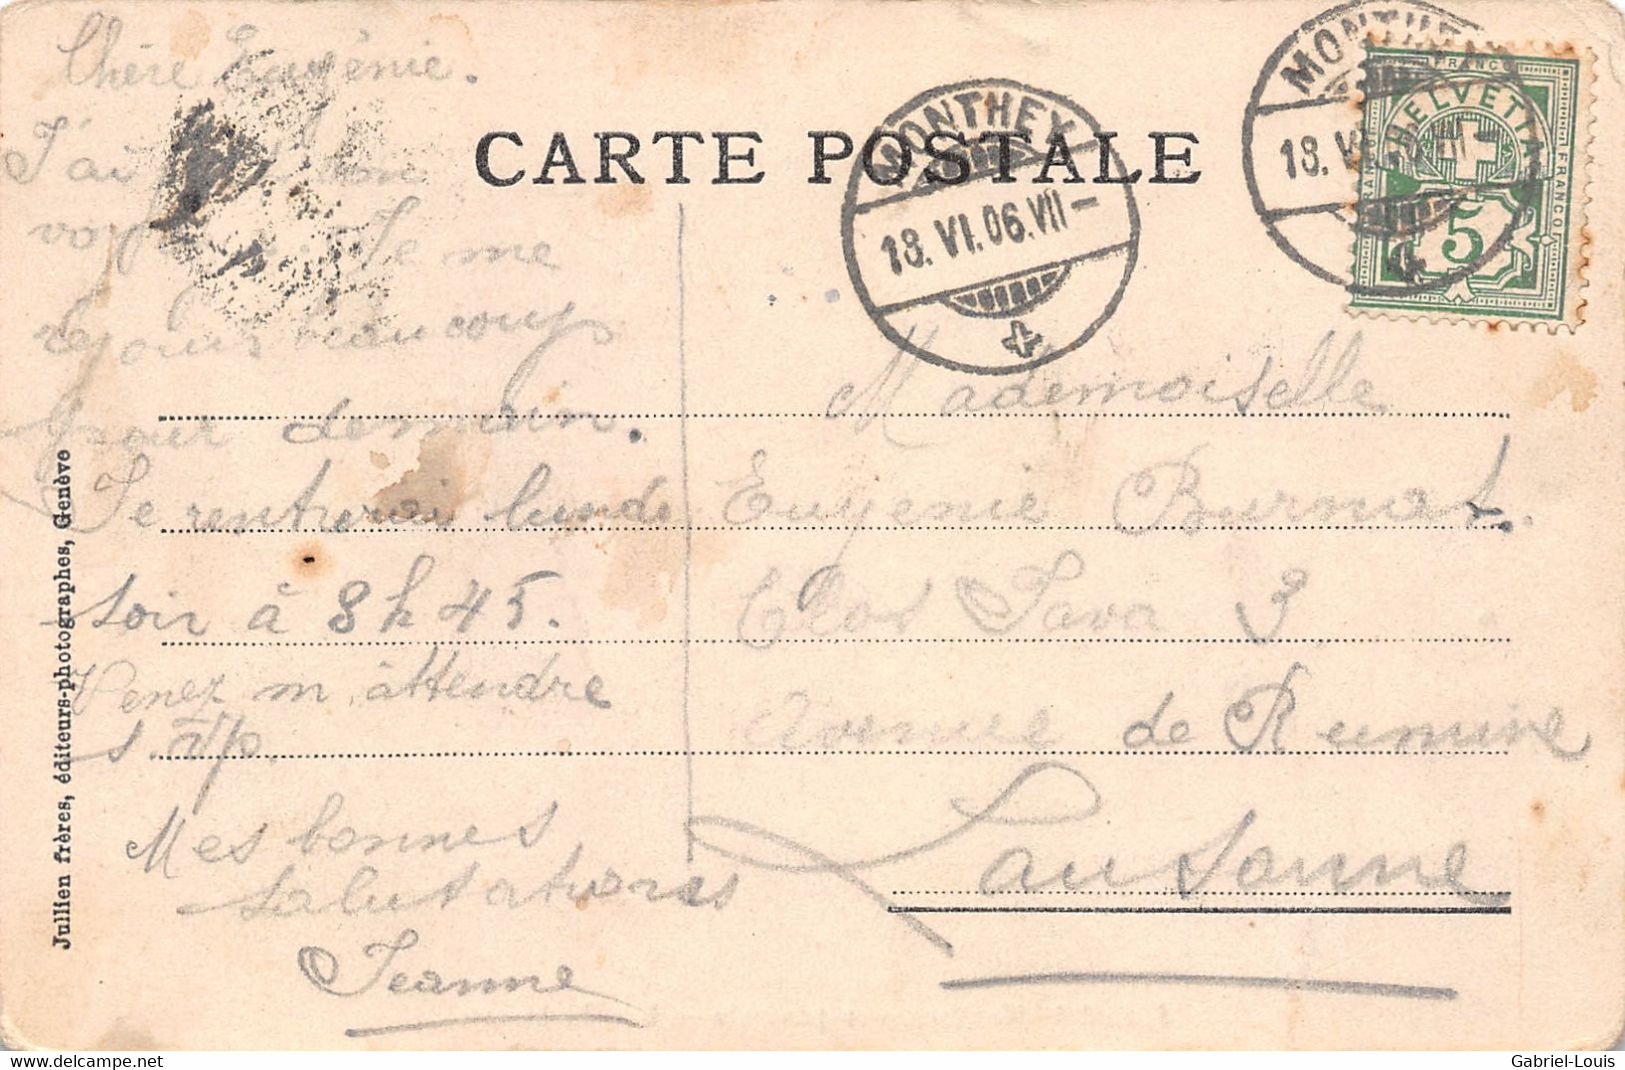 Chère Eugénie.
J'ai
Je me
réjouis beaucoup
pour demain.
Je rentrerai lundi
soir à 8 h 45.
Venez m'attendre
s. v. p.
Mes bonnes
salutations
Jeanne
CARTE POSTALE
MONTHEY
18. VI. 06. VII–
MONTHEY
18. VI. VII–
FRANCO
HELVETIA
FRANCO
FRANCO
5
Mademoiselle
Eugenie Burnat.
Clos Java 3
Avenue de Rumine
Lausanne
Jullien frères, éditeurs-photographes, Genève
www.delcampe.net
Gabriel-Louis